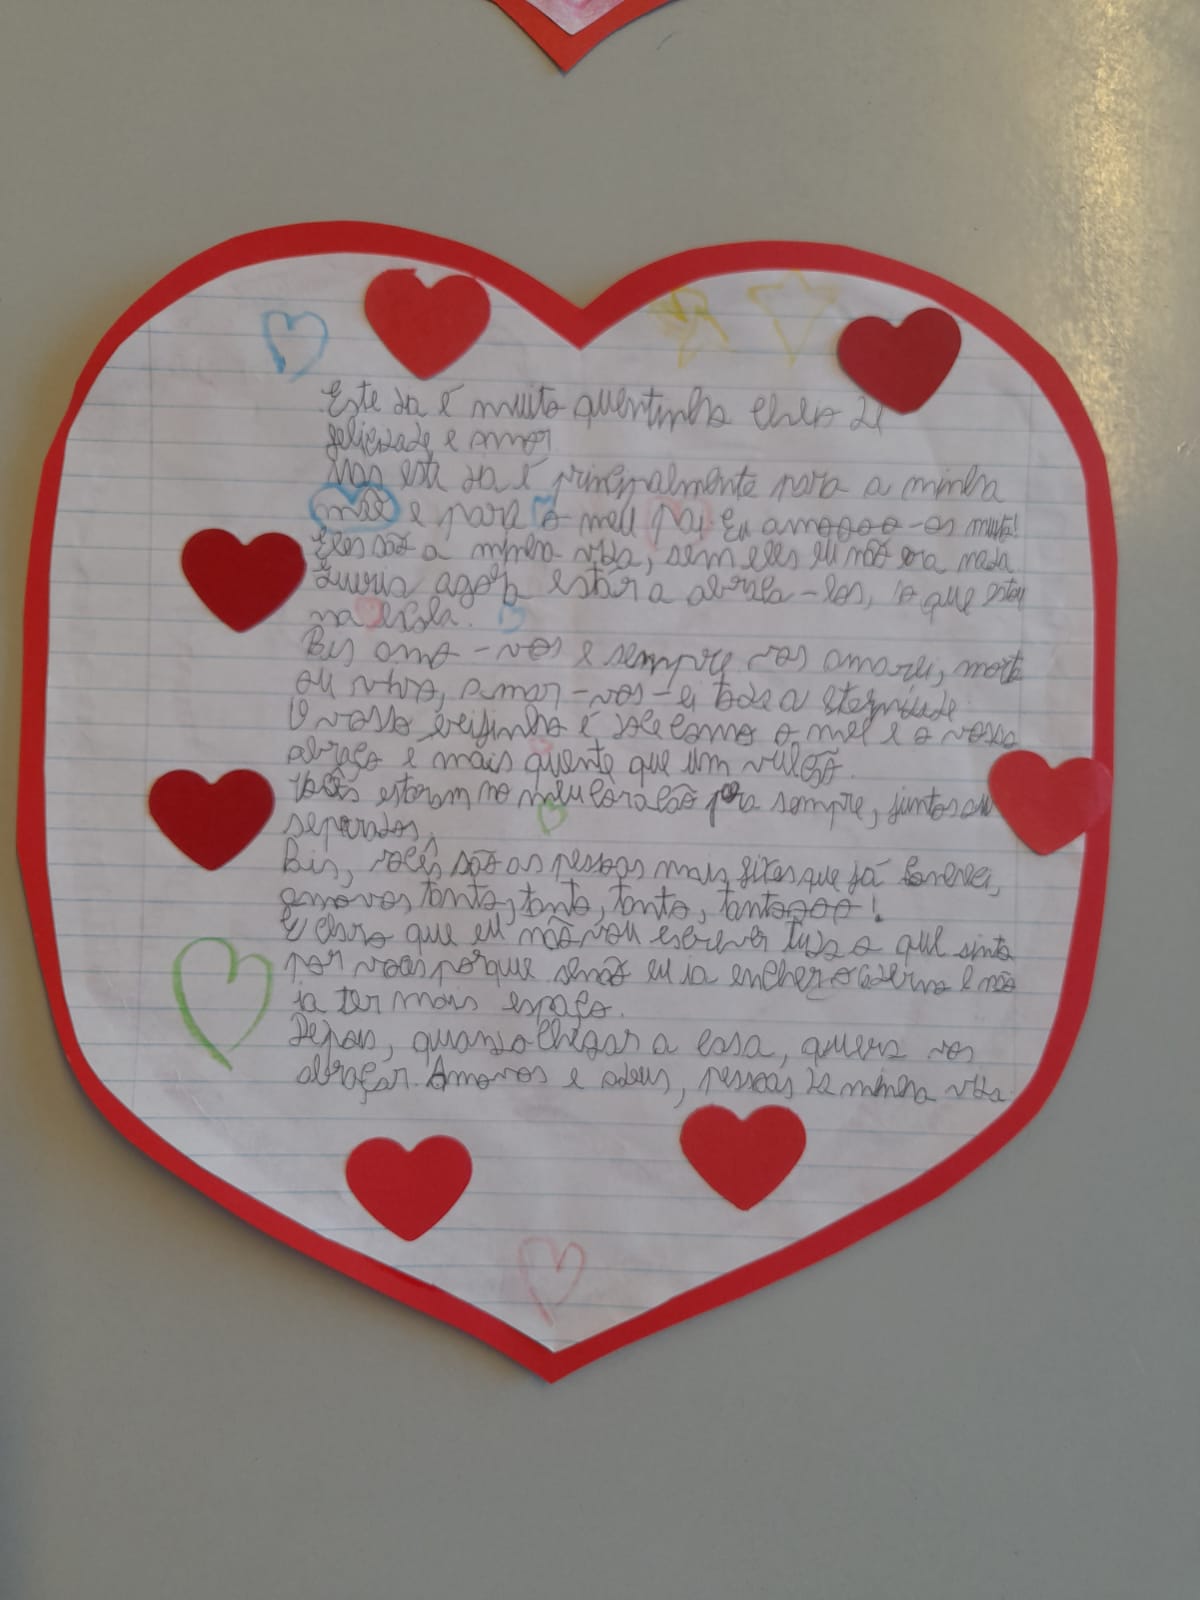 Este dia é muito quentinho cheio de
felicidade e amor
Mas este dia é principalmente para a minha
mãe e para o meu pai. Eu amoooo-os muito!
Eles são a minha vida, sem eles eu não era nada.
Queria agora estar a abraça-los, só que estou
na escola.
Bis amo-vos e sempre vos amarei, morto
ou vivo, amar-vos-ei toda a eternidade.
O vosso beijinho é doce como o mel e o vosso
abraço é mais quente que um vulcão.
Vocês estaram no meu coração para sempre, juntos ou
separados,
Bis, vocês são as pessoas mais fixes que já conheci,
amovos tanto, tanto, tanto, tantoooo!
É claro que eu não vou escrever tudo o que sinto
por voces porque senão eu ia encher o caderno e não
ia ter mais espaço.
Depois, quando chegar a casa, quero vos
abraçar. Amovos e adeus, pessoas da minha vida.